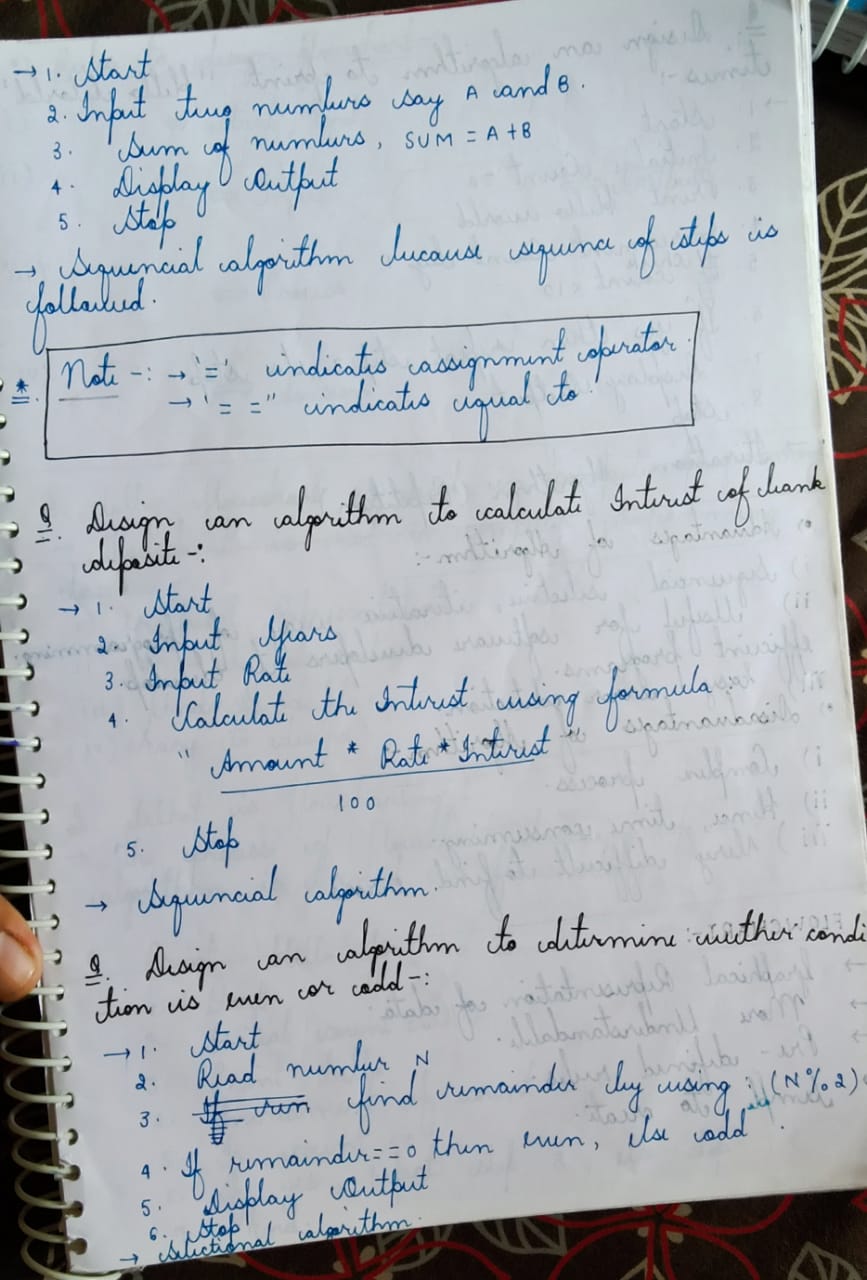 → 1. Start
2. Input two numbers say A and B.
3. Sum of numbers, SUM = A+B
4. Display Output
5. Stop
→ Sequencial algorithm because sequence of steps is
followed.
* Note -: → '=' indicates assignment operator.
→ '= =" indicates equal to.
Q. Design an algorithm to calculate Interest of bank
deposite -:
→ 1. Start
2. Input Years
3. Input Rate
4. Calculate the Interest using formula.
" Amount * Rate * Interest "
100
5. Stop
→ Sequencial algorithm.
Q. Design an algorithm to determine wether condi
tion is even or odd -:
→ 1. Start
2. Read number N
3. find remainder by using : (N%2)
4. If remainder==0 then even, else odd.
5. Display Output
6. Stop
→ Selectional algorithm.